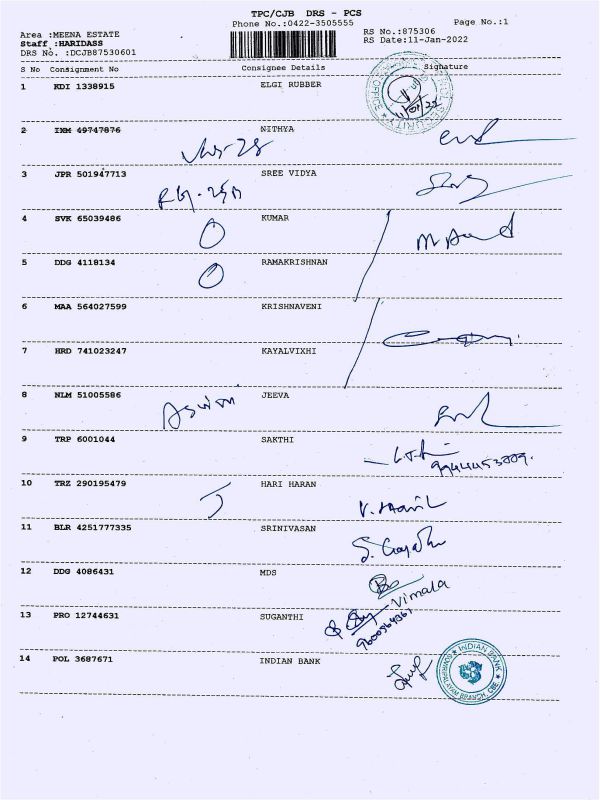 TPC/CJB DRS - PCS
Phone No.:0422-3505555
Page No.:1
Area :MEENA ESTATE
Staff :HARIDASS
DRS No. :DCJB87530601
RS No.:875306
RS Date:11-Jan-2022
S No Consignment No Consignee Details Signature
1 KDI 1338915 ELGI RUBBER
2 IXM 49747876 NITHYA
3 JPR 501947713 SREE VIDYA
4 SVK 65039486 KUMAR
5 DDG 4118134 RAMAKRISHNAN
6 MAA 564027599 KRISHNAVENI
7 HRD 741023247 KAYALVIXHI
8 NLM 51005586 JEEVA
Aswini
9 TRP 6001044 SAKTHI
9944453009.
10 TRZ 290195479 HARI HARAN
11 BLR 4251777335 SRINIVASAN
S. Gayathri
12 DDG 4086431 MDS
Vimala
13 PRO 12744631 SUGANTHI
14 POL 3687671 INDIAN BANK
INDIAN BANK
BRANCH, CBE